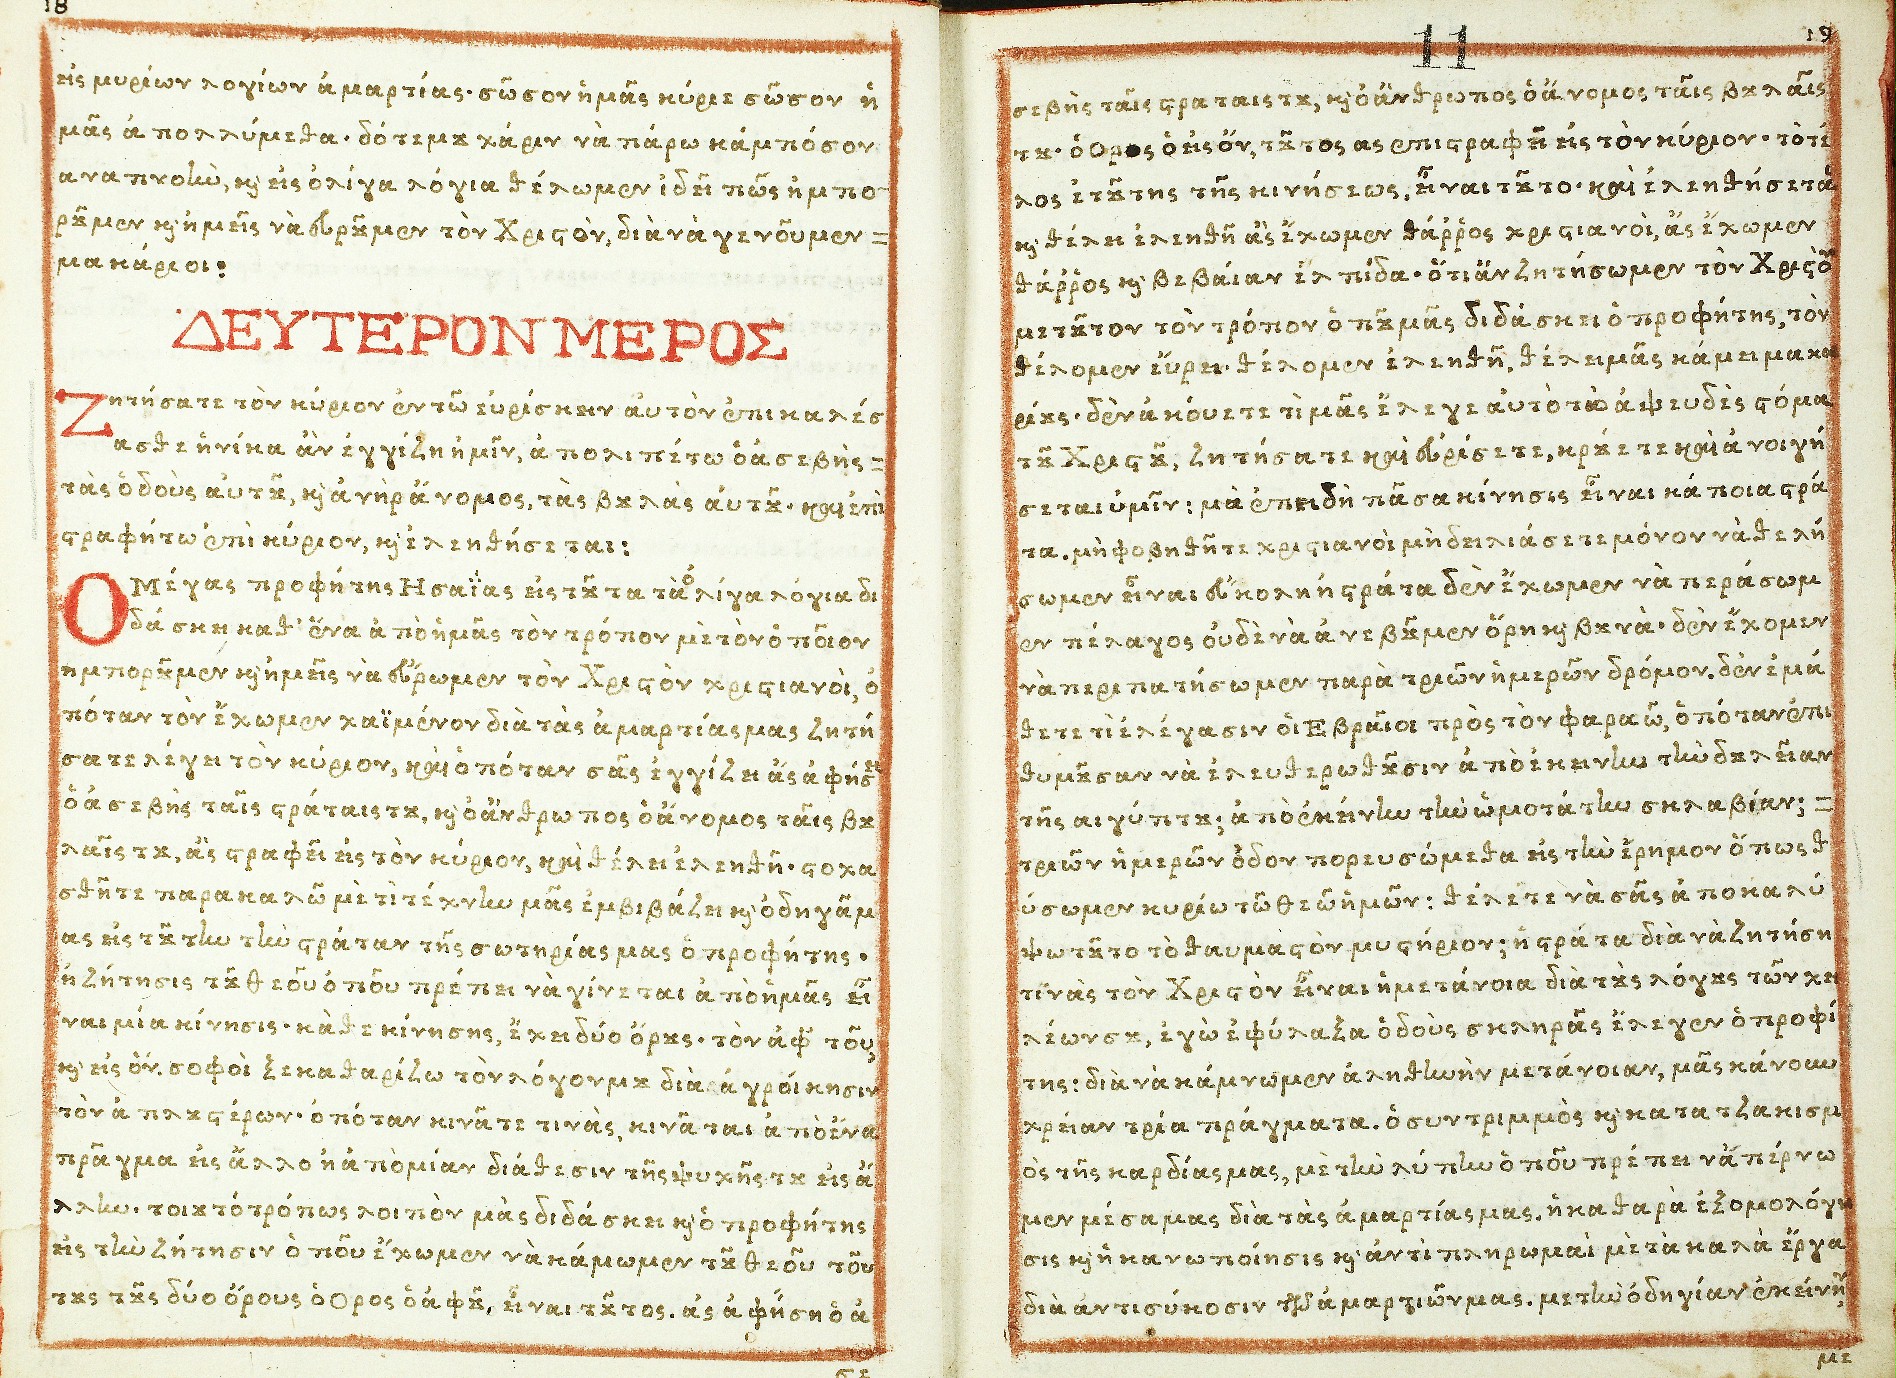 18
εἰς μυρίων λογίων ἁμαρτίας· σῶσον ἡμᾶς κύριε σῶσον ἡ
μᾶς ἀπολλύμεθα· δότε μȣ χάριν νὰ πάρω κάμπόσον
αναπνοὴν, κ̀ εἰς ὀλίγα λόγια θέλωμεν ἰδεῖ πῶς ἠμπο
ρȣ͂μεν κ̀ ἡμεῖς νὰ εὑρȣ͂μεν τὸν Χριϛὸν, διὰ νὰ γενοῦμεν =
μακάριοι:
ΔΕΥΤΕΡΟΝ ΜΕΡΟΣ
Ζητήσατε τὸν κύριον ἐν τῶ εὑρίσκειν ἀυτὸν ἐπικαλέσ
ασθε ἡνίκα ἂν ἐγγίζη ἡμῖν, ἀπολιπέτω ὁ ἀσεβὴς =
τὰς ὁδοὺς ἀυτȣ͂, κ̀ ἀνὴρ ἄνομος, τὰς βȣλὰς ἀυτȣ͂· καὶ ἐπι
ϛραφήτω ἐπὶ κύριον, κ̀ ἐλεηθήσεται:
Ο Μέγας προφήτης Ησαΐας εἰς τȣ͂τα τὰ ὀλίγα λόγια δι
δάσκει καθ' ἕνα ἀπὸ ἡμᾶς τὸν τρόπον μὲ τὸν ὁποῖον
ημπορȣ͂μεν κ̀ ἡμεῖς νὰ εὕρωμεν τὸν Χριϛὸν χριϛιανοὶ, ὁ
πόταν τὸν ἔχωμεν χαϊμένον διὰ τὰς ἁμαρτίας μας ζητή
σατε λέγει τὸν κύριον, καὶ ὁπόταν σᾶς ἐγγίζει ἂς ἀφήσει
ὁ ἀσεβὴς ταῖς ϛράταις τȣ, κ̀ ὁ ἄνθρωπος ὁ ἄνομος ταῖς βȣ
λαῖς τȣ, ἂς ϛραφεῖ εἰς τὸν κύριον, καὶ θέλει ἐλεηθῆ· ϛοχα
σθῆτε παρακαλῶ μὲ τὶ τέχνην μᾶς ἐμβιβάζει κ̀ ὁδηγᾶ μ
ας εἰς τȣ́την τὴν ϛράταν τῆς σωτηρίας μας ὁ προφήτης·
ἡ ζήτησις τȣ͂ θεοῦ ὁποῦ πρέπει νὰ γίνεται ἀπὸ ἡμᾶς εἶ
ναι μία κίνησις· κάθε κίνησης, ἔχει δύο ὅρȣς· τὸν ἀφ' τοῦ,
κ̀ εἰς ὅν. σοφοὶ ξεκαθαρίζω τὸν λόγον μȣ διὰ ἀγροίκησιν
τὸν ἁπλȣϛέρων· ὁπόταν κινᾶτε τινὰς, κινᾶται ἀπὸ ἕνα
πρᾶγμα εἰς ἄλλο ἢ ἀπὸ μίαν διάθεσιν τῆς ψυχῆς τȣ εἰς ἄ
λλην· τοιȣτότρόπως λοιπὸν μὰς διδάσκει κ̀ ὁ προφήτης
εἰς τὴν ζήτησιν ὁποῦ ἔχωμεν νὰ κάμωμεν τȣ͂ θεοῦ τοῦ
τȣς τȣ͂ς δύο ὅρους ὁ Ορος ὁ ἀφȣ͂, εἶναι τȣ͂τος. ἀς ἀφήση ὁ ἀ
σε
11
19
σεβὴς ταῖς ϛραταις τȣ, κ̀ ὁ ἄνθρωπος ὁ ἄνομος ταῖς βȣλαῖς
τȣ· ὁ Ορος ὁ εἰς ὅν, τȣ͂τος ας επιϛραφῆ εἰς τὸν κύριον· τὸ τέ
λος ἐτȣ́της τῆς κινήσεως, εἶναι τȣ͂το· καὶ ἐλεηθήσεται
κ̀ θέλει ἐλεηθῆ ἂς ἔχωμεν θάῤῥος χριϛιανοὶ, ἂς ἔχωμεν
θάῤῥος κ̀ βεβάιαν ἐλπίδα· ὅτι ἂν ζητήσωμεν τὸν Χριϛὸ
μετȣ͂τον τὸν τρόπον ὁπȣ͂ μᾶς διδάσκει ὁ προφήτης, τὸν
θέλομεν ἕυρει· θέλομεν ἐλεηθῆ, θέλει μᾶς κάμει μακα
ρίȣς· δὲν ἀκόυετε τὶ μᾶς ἔλεγε ἀυτὸ τὸ ἀψευδὲς ϛόμα
τȣ͂ Χριϛȣ͂, ζητήσατε καὶ εὑρίσετε, κρȣ́ετε καὶ ἀνοιγή
σεται ὑμῖν: μὰ ἐπειδὴ πᾶσα κίνησις εἶναι κάποια ϛρά
τα. μὴ φοβηθῆτε χριϛιανοὶ μὴ δειλιάσετε μόνον νὰ θελή
σωμεν εἶναι εὔκολη ἡ ϛράτα δὲν ἔχωμεν νὰ περάσωμ
εν πέλαγος ὀυδὲ νὰ ἀνεβȣ͂μεν ὄρη κ̀ βȣνὰ· δὲν ἔχομεν
νὰ περιπατήσωμεν παρὰ τριῶν ἡμερῶν δρόμον. δὲν ἐμά
θετε τὶ ἐλέγασιν ὁι Εβραῖοι πρὸς τὸν φαραῶ, ὁπόταν ἐπι
θυμȣ͂σαν νὰ ἐλευθερωθȣ͂σιν ἀπὸ ἐκεινην τὴν δȣλεῖαν
τῆς αιγύπτȣ; ἀπὸ ἐκείνην τὴν ὠμοτάτην σκλαβίαν; =
τριῶν ἡμερῶν ὁδον πορευσώμεθα εἰς τὴν ἔρημον ὅπως θ
ύσωμεν κυρίω τῶ θεῶ ἡμῶν: θέλετε νὰ σᾶς ἀποκαλύ
ψω τȣ͂το τὸ θαυμαϛὸν μυϛήριον; ἡ ϛράτα διὰ νὰ ζητήση
τινὰς τὸν Χριϛὸν εἶναι ἡ μετάνοια διὰ τȣ̀ς λόγȣς τῶν χει
λέων σȣ, ἐγὼ ἐφύλαξα ὁδοὺς σκληρᾶς ἔλεγεν ὁ προφί
της: διὰ νὰ κάμνωμεν ἀληθινὴν μετάνοιαν, μᾶς κάνουν
χρείαν τρία πράγματα. ὁ συντριμμὸς κ̀ κατατζακισμ
ὸς τῆς καρδίας μας, μὲ τὴν λύπην ὁποῦ πρέπει νὰ πέρνω
μεν μέσα μας διὰ τὰς ἁμαρτίας μας. ἡ καθαρὰ ἐξομολόγη
σις κ̀ ἡ κανωποίησις κ̀ ἀντὶ πληρωμαὶ μὲ τὰ καλὰ ἔργα
διὰ ἀντισύκοσιν τῶν ἁμαρτιῶν μας. με τὴν ὁδηγίαν ἐκείνη
με